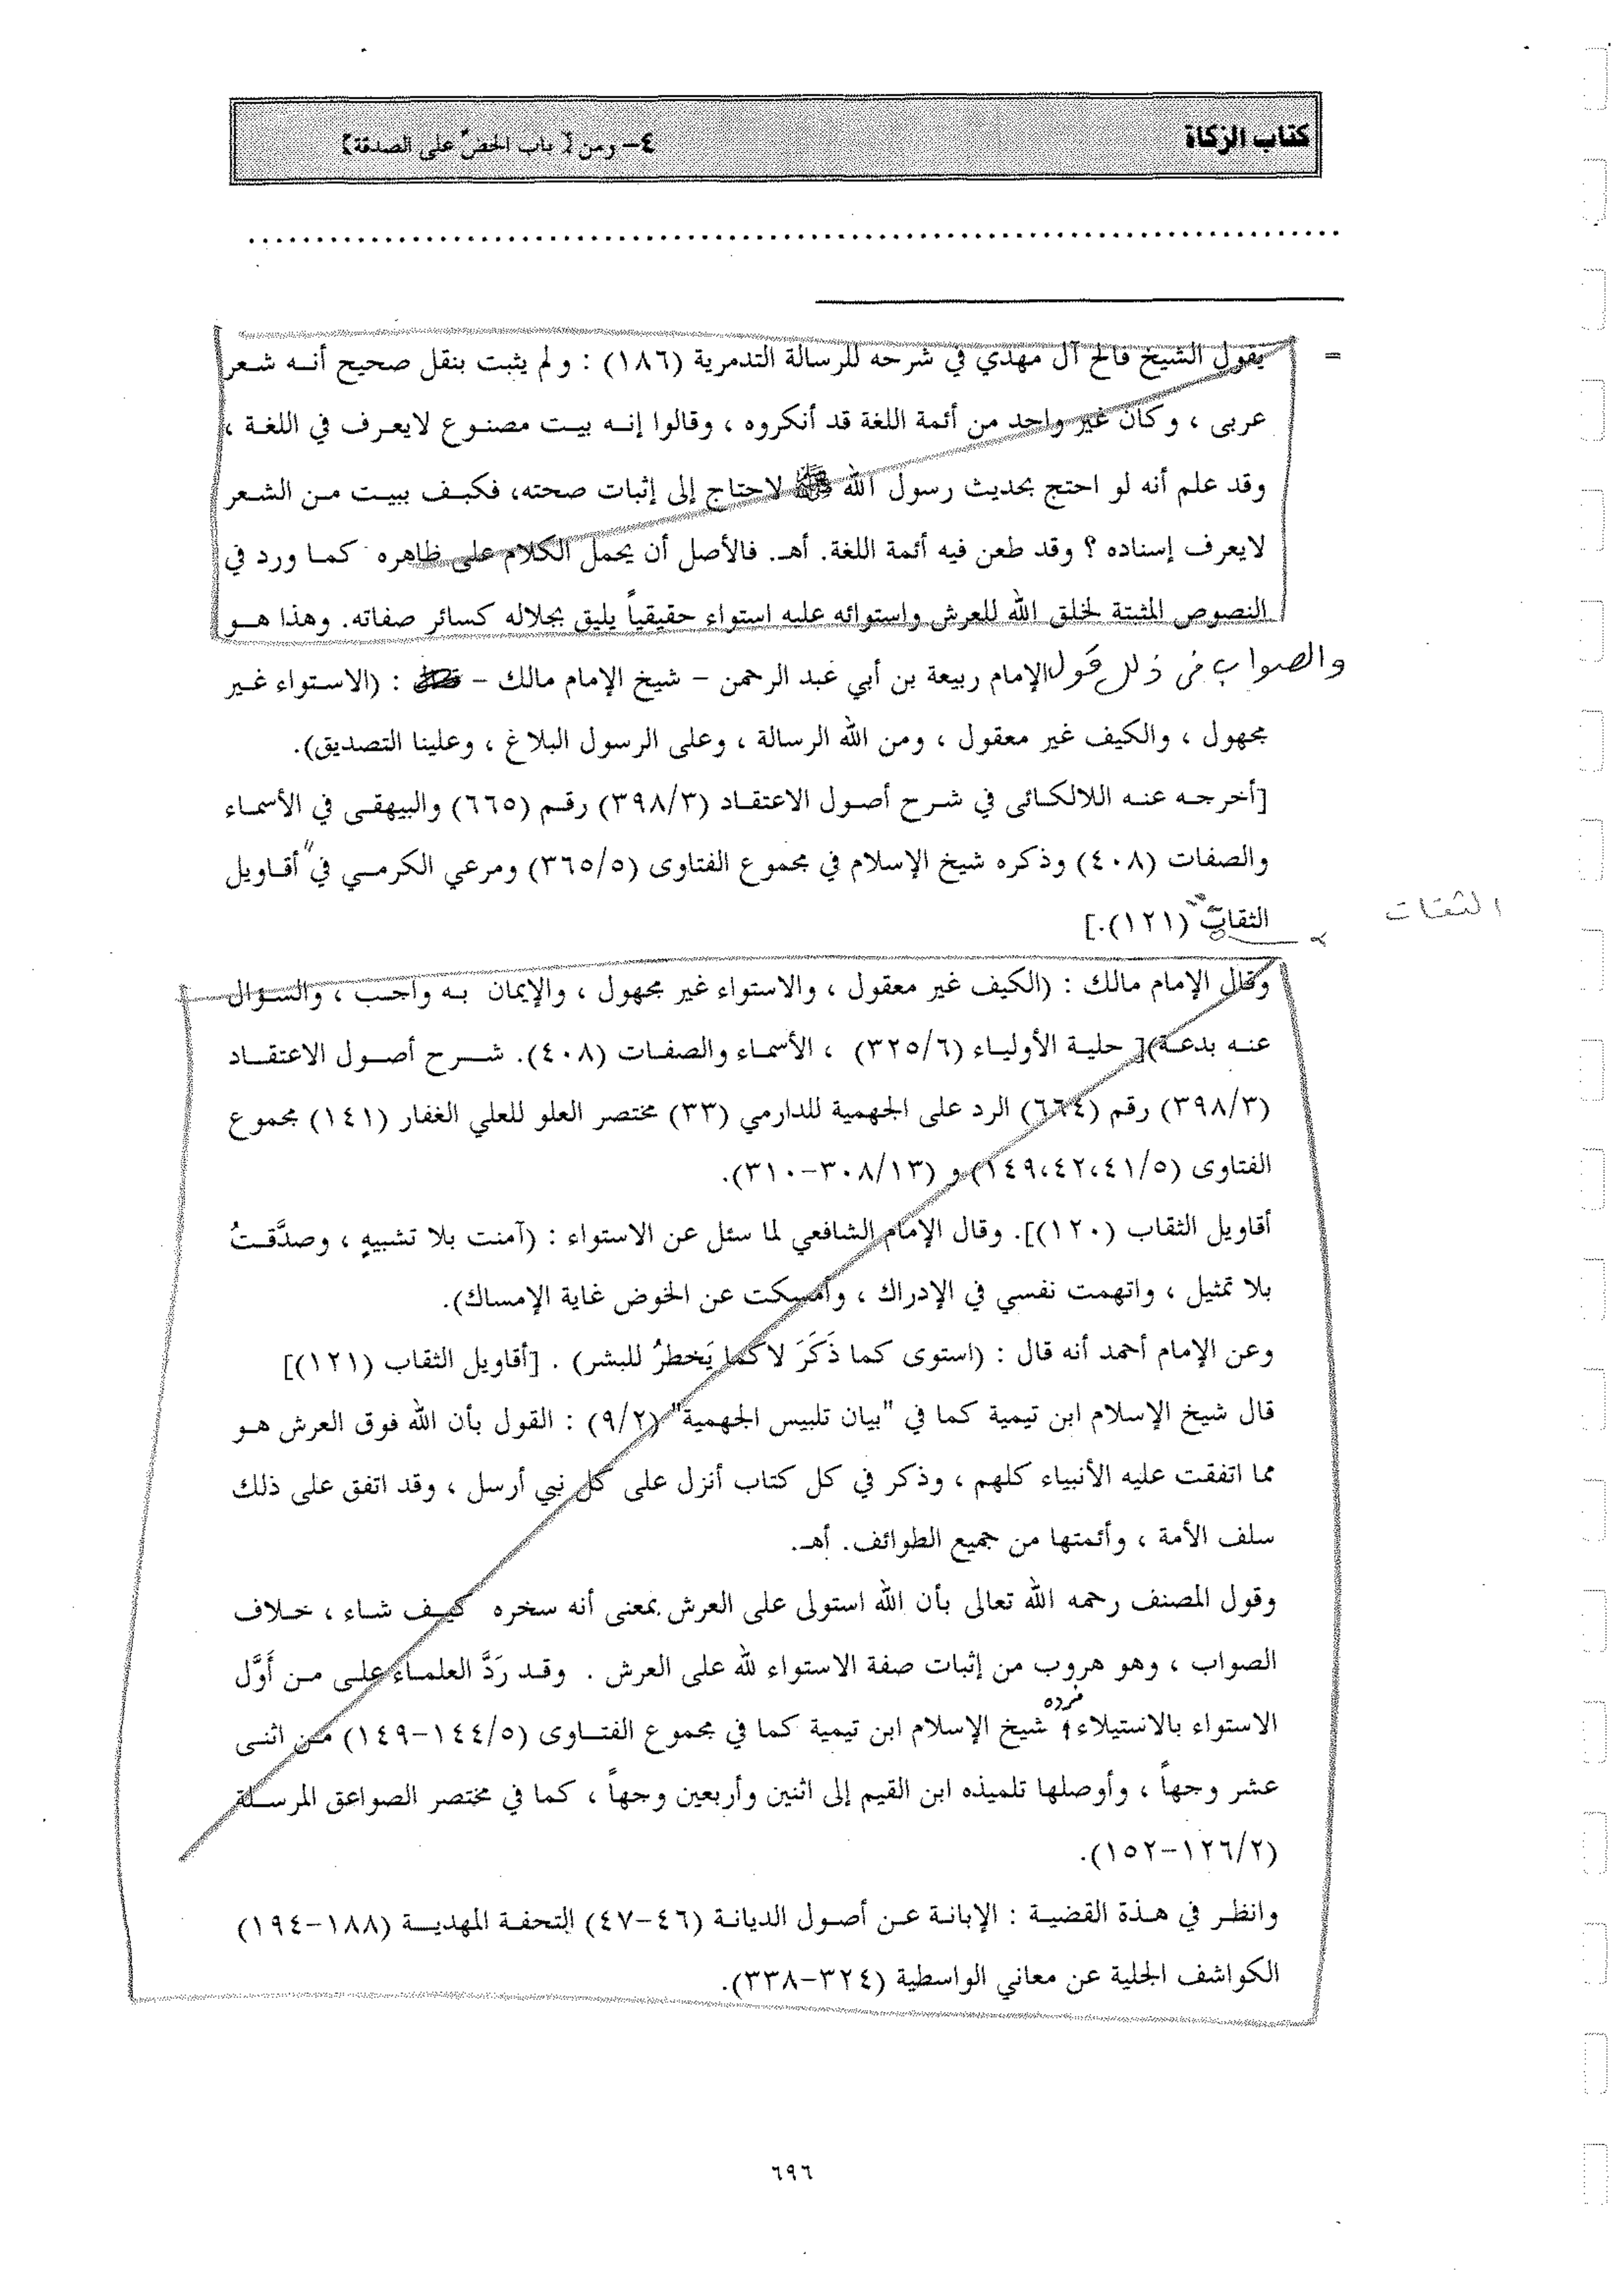 كتاب الزكاة
٤- ومن [ باب الحضّ على الصدقة]
= يقول الشيخ فالح آل مهدي في شرحه للرسالة التدمرية (١٨٦) : ولم يثبت بنقل صحيح أنه شعر
عربى ، وكان غير واحد من أئمة اللغة قد أنكروه ، وقالوا إنه بيت مصنوع لايعرف في اللغة ،
وقد علم أنه لو احتج بحديث رسول الله ﷺ لاحتاج إلى إثبات صحته، فكيف ببيت من الشعر
لايعرف إسناده ؟ وقد طعن فيه أئمة اللغة. أهـ. فالأصل أن يحمل الكلام على ظاهره كما ورد في
النصوص المثبتة لخلق الله للعرش واستوائه عليه استواء حقيقياً يليق بجلاله كسائر صفاته. وهذا هو
والصواب في ذلك قول الإمام ربيعة بن أبي عبد الرحمن – شيخ الإمام مالك – : (الاستواء غير
مجهول ، والكيف غير معقول ، ومن الله الرسالة ، وعلى الرسول البلاغ ، وعلينا التصديق).
[أخرجه عنه اللالكائى في شرح أصول الاعتقاد (٣٩٨/٣) رقم (٦٦٥) والبيهقى في الأسماء
والصفات (٤٠٨) وذكره شيخ الإسلام في مجموع الفتاوى (٣٦٥/٥) ومرعي الكرمي في "أقاويل
الثقاب" (١٢١).]
الثقات
وقال الإمام مالك : (الكيف غير معقول ، والاستواء غير مجهول ، والإيمان به واجب ، والسؤال
عنه بدعة)[ حلية الأولياء (٣٢٥/٦) ، الأسماء والصفات (٤٠٨). شرح أصول الاعتقاد
(٣٩٨/٣) رقم (٦٦٤) الرد على الجهمية للدارمي (٣٣) مختصر العلو للعلي الغفار (١٤١) مجموع
الفتاوى (١٤٩،٤٢،٤١/٥) و (٣٠٨/١٣-٣١٠).
أقاويل الثقاب (١٢٠)]. وقال الإمام الشافعي لما سئل عن الاستواء : (آمنت بلا تشبيهٍ ، وصدَّقتُ
بلا تمثيل ، واتهمت نفسي في الإدراك ، وأمسكت عن الخوض غاية الإمساك).
وعن الإمام أحمد أنه قال : (استوى كما ذَكَرَ لا كما يَخطرُ للبشر) . [أقاويل الثقاب (١٢١)]
قال شيخ الإسلام ابن تيمية كما في "بيان تلبيس الجهمية" (٩/٢) : القول بأن الله فوق العرش هو
مما اتفقت عليه الأنبياء كلهم ، وذكر في كل كتاب أنزل على كل نبي أرسل ، وقد اتفق على ذلك
سلف الأمة ، وأئمتها من جميع الطوائف. أهـ.
وقول المصنف رحمه الله تعالى بأن الله استولى على العرش بمعنى أنه سخره كيف شاء ، خلاف
الصواب ، وهو هروب من إثبات صفة الاستواء لله على العرش . وقد رَدَّ العلماء على من أَوَّل
الاستواء بالاستيلاء فرده شيخ الإسلام ابن تيمية كما في مجموع الفتاوى (١٤٤/٥-١٤٩) من اثنى
عشر وجهاً ، وأوصلها تلميذه ابن القيم إلى اثنين وأربعين وجهاً ، كما في مختصر الصواعق المرسلة
(١٢٦/٢-١٥٢).
وانظر في هذة القضية : الإبانة عن أصول الديانة (٤٦-٤٧) التحفة المهدية (١٨٨-١٩٤)
الكواشف الجلية عن معاني الواسطية (٣٢٤-٣٣٨).
٦٩٦